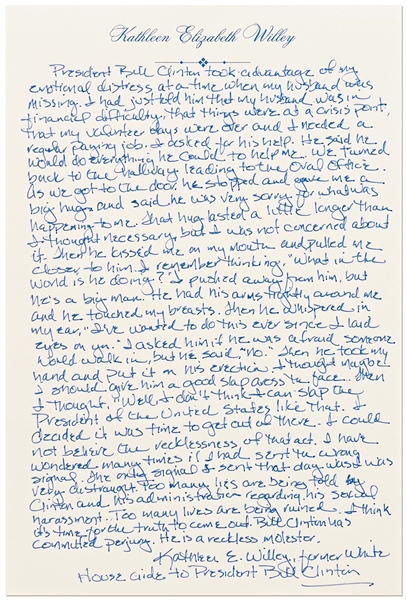 Kathleen Elizabeth Willey
President Bill Clinton took advantage of my
emotional distress at a time when my husband was
missing. I had just told him that my husband was in
financial difficulty. That things were at a crisis point,
that my volunteer days were over and I needed a
regular paying job. I asked for his help. He said he
would do everything he could to help me. We turned
back to the hallway leading to the Oval Office.
As we got to the door, he stopped and gave me a
big hug and said he was very sorry for what was
happening to me. That hug lasted a little longer than
I thought necessary, but I was not concerned about
it. Then he kissed me on my mouth and pulled me
closer to him. I remember thinking, "What in the
world is he doing?" I pushed away from him, but
he's a big man. He had his arms tightly around me
and he touched my breasts. Then he whispered in
my ear, "I've wanted to do this ever since I laid
eyes on you." I asked him if he was afraid someone
would walk in, but he said, "no." Then he took my
hand and put it on his erection. I thought maybe
I should give him a good slap across the face. Then
I thought, "Well, I don't think I can slap the
President of the United States like that. I
decided it was time to get out of there. I could
not believe the recklessness of that act. I have
wondered many times if I had sent the wrong
signal. The only signal I sent that day was I was
very distraught. Too many lies are being told by
Clinton and his administration regarding his sexual
harassment. Too many lives are being ruined. I think
it's time for the truth to come out. Bill Clinton has
committed perjury. He is a reckless molester.
Kathleen E. Willey, former White
House aide to President Bill Clinton